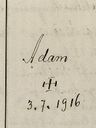 Adam
3.7.1916